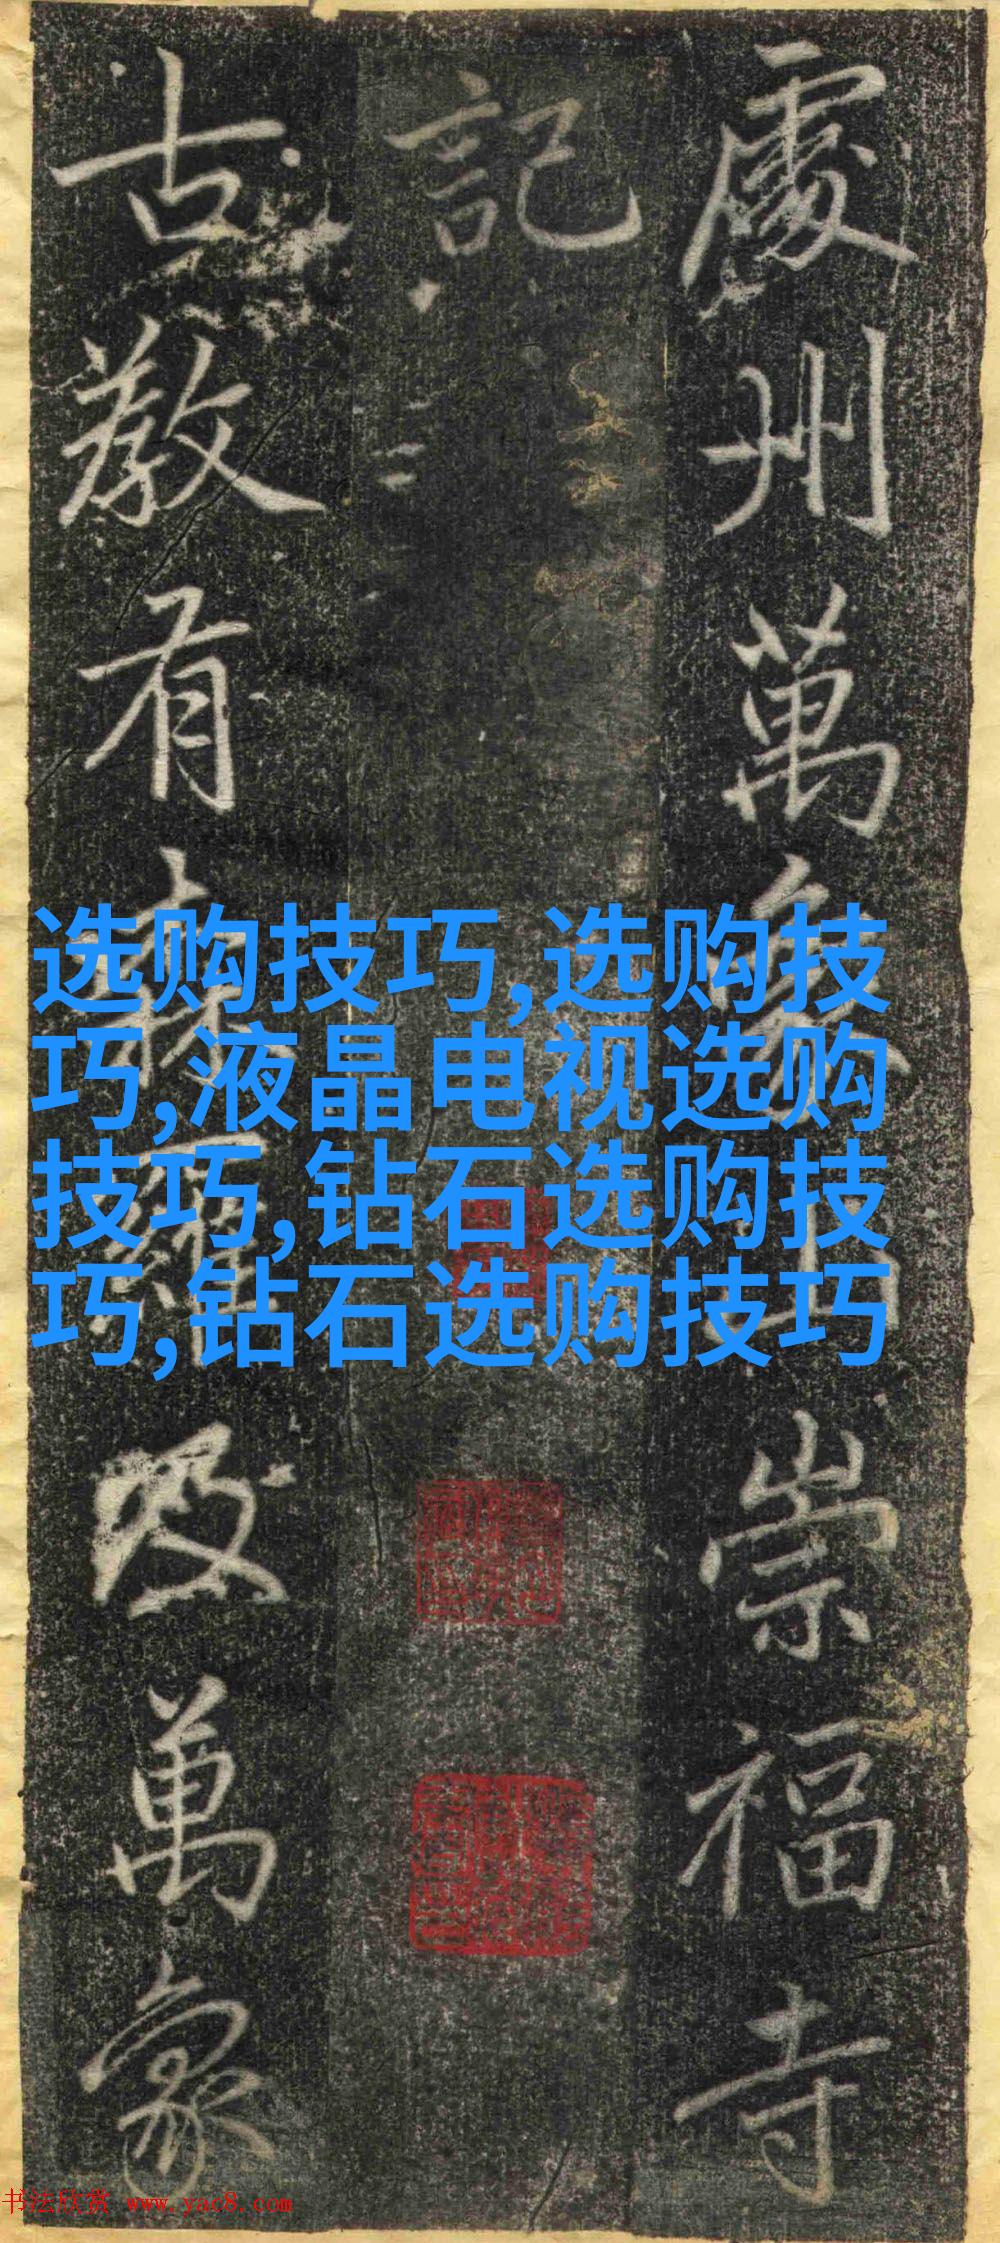 處州萬象山崇福寺
記
古敎有森羅及萬象
选购技巧,选购技
巧,液晶电视选购
技巧,钻石选购技
巧,钻石选购技巧
书法欣赏 www.yac8.com